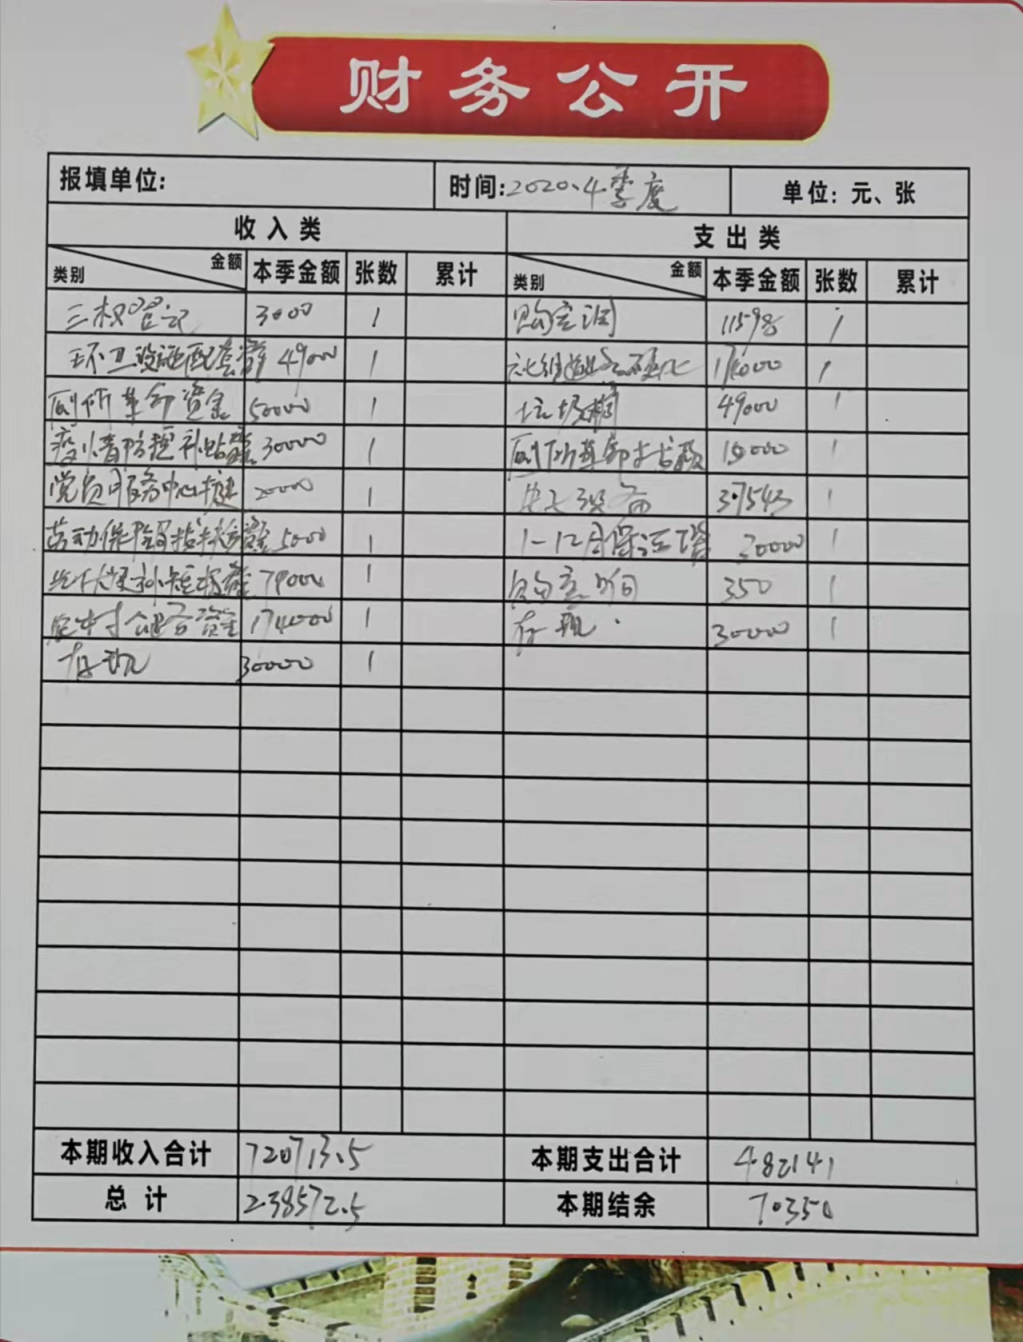 财务公开
报填单位: 时间:2020.4季度 单位: 元、张
收入类 支出类
类别 金额 本季金额 张数 累计 类别 金额 本季金额 张数 累计
三权登记 3000 1 购空调 11598 1
环卫设施配套资 49000 1 硬化 1
厕所革命资金 50000 1 垃圾桶 49000 1
疫情防控补贴 30000 1 厕所革命 1
党员服务中心 1 设备 37543 1
劳动保障 5000 1 1-12月保洁 30000 1
79000 1 350 1
资金 174000 1 存现 30000 1
存现 30000 1
本期收入合计 720713.5 本期支出合计 482141
总计 238572.5 本期结余 70350